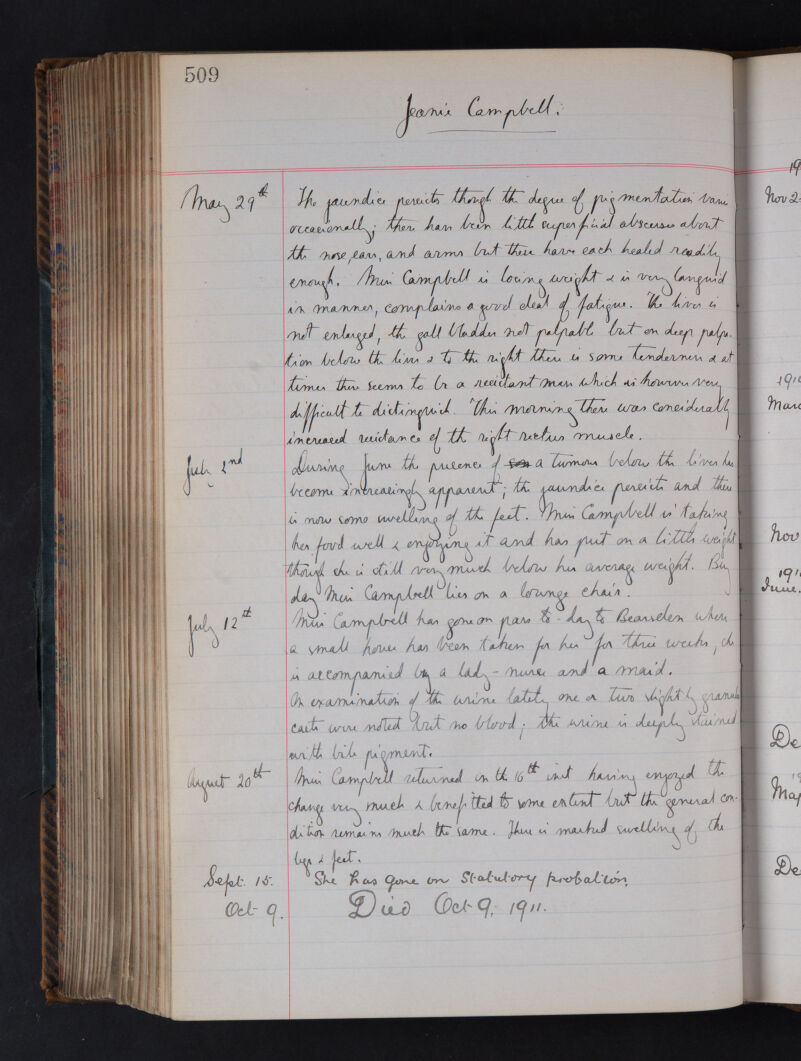 509
Jeanie Campbell.
May 29th The jaundice persists though the degree of pigmentation varies
occasionally; there have been little superficial abscesses about
the nose, ears, and arms but these have each healed readily
enough. Miss Campbell is losing weight & is very languid
in manner, complains a good deal of fatigue. The liver is
not enlarged, the gall bladder not palpable but on deep palpa-
tion below the liver & to the right there is some tenderness & at
times there seems to be a resistant mass which is however very
difficult to distinguish. This morning there was considerably
increased resistance of the right rectus muscle.
July 2nd During June the presence of a tumour below the liver has
become increasingly apparent; the jaundice persists and there
is now some swelling of the feet. Miss Campbell is taking
her food well & enjoying it and has put on a little weight
though she is still very much below her average weight. By
day Miss Campbell lies on a lounge chair.
July 12th Miss Campbell has gone on pass to-day to Bearsden where
a small house has been taken for her for three weeks, she
is accompanied by a lady-nurse and a maid.
On examination of the urine lately one or two slightly granular
casts were noted but no blood; the urine is deeply stained
with bile pigment.
August 20th Miss Campbell returned on the 16th inst having enjoyed the
change very much & benefitted to some extent but the general con-
dition remains much the same. There is marked swelling of the
legs & feet.
Sept. 15. She has gone on Statutory probation.
Oct 9. Died Oct 9, 1911.
19
Nov 2
191
Marc
Nov
191
June.
De
19
May
De